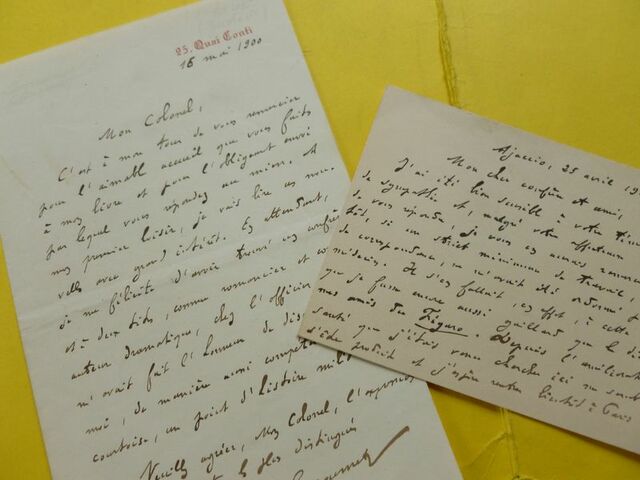 25, Quai Conti
16 mai 1900
Mon Colonel,
C'est à mon tour de vous remercier
pour l'aimable accueil que vous faites
à mon livre et pour l'obligeant envoi
par lequel vous répondez au mien. A
mon premier loisir, je vais lire vos nou-
velles avec grand intérêt. En attendant,
je me félicite d'avoir trouvé un confrère
et à deux titres, comme romancier et co
auteur dramatique, chez l'officier
m'avait fait l'honneur de dis
moi, de manière aussi compét
courtoise, un point d'histoire mili
Veuillez agréer, Mon Colonel, l'expression
plus distingués
Ajaccio, 25 avril 19
Mon cher confrère et ami,
J'ai été bien sensible à votre
de sympathie et, malgré votre
de vous répondre, je vous en aurais remer
tôt, si un strict minimum de travail,
de correspondance, ne m'avait été ordonné
médecin. Il s'en fallait, en effet, à cette
que je fusse encore aussi gaillard que le di
mes amis du Figaro. Depuis l'améliorat
santé que j'étais venu chercher ici
et j'espère rentrer bientôt à Paris